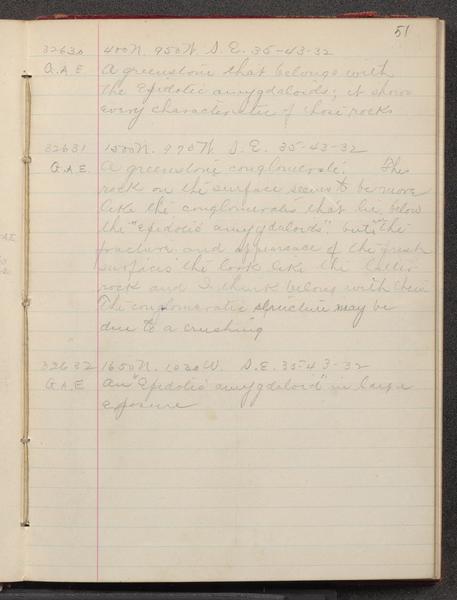 51
32630 400N. 950W S.E. 35-43-32
G.A.E. A greenstone that belongs with
the Epidotic amygdaloids; it shows
every characteristic of those rocks
32631 1500N. 970W S.E. 35-43-32
G.A.E. A greenstone conglomerate. This
rock on the surface seems to be more
like the conglomerates that lie below
the "epidotic amygdaloids". but the
fracture and appearance of the fresh
surfaces the look like the latter
rock and I think belong with them
The conglomeratic structure may be
due to a crushing
32632 1650N. 1030W. S.E. 35-43-32
G.A.E. An "Epidotic amygdaloid" in large
exposure